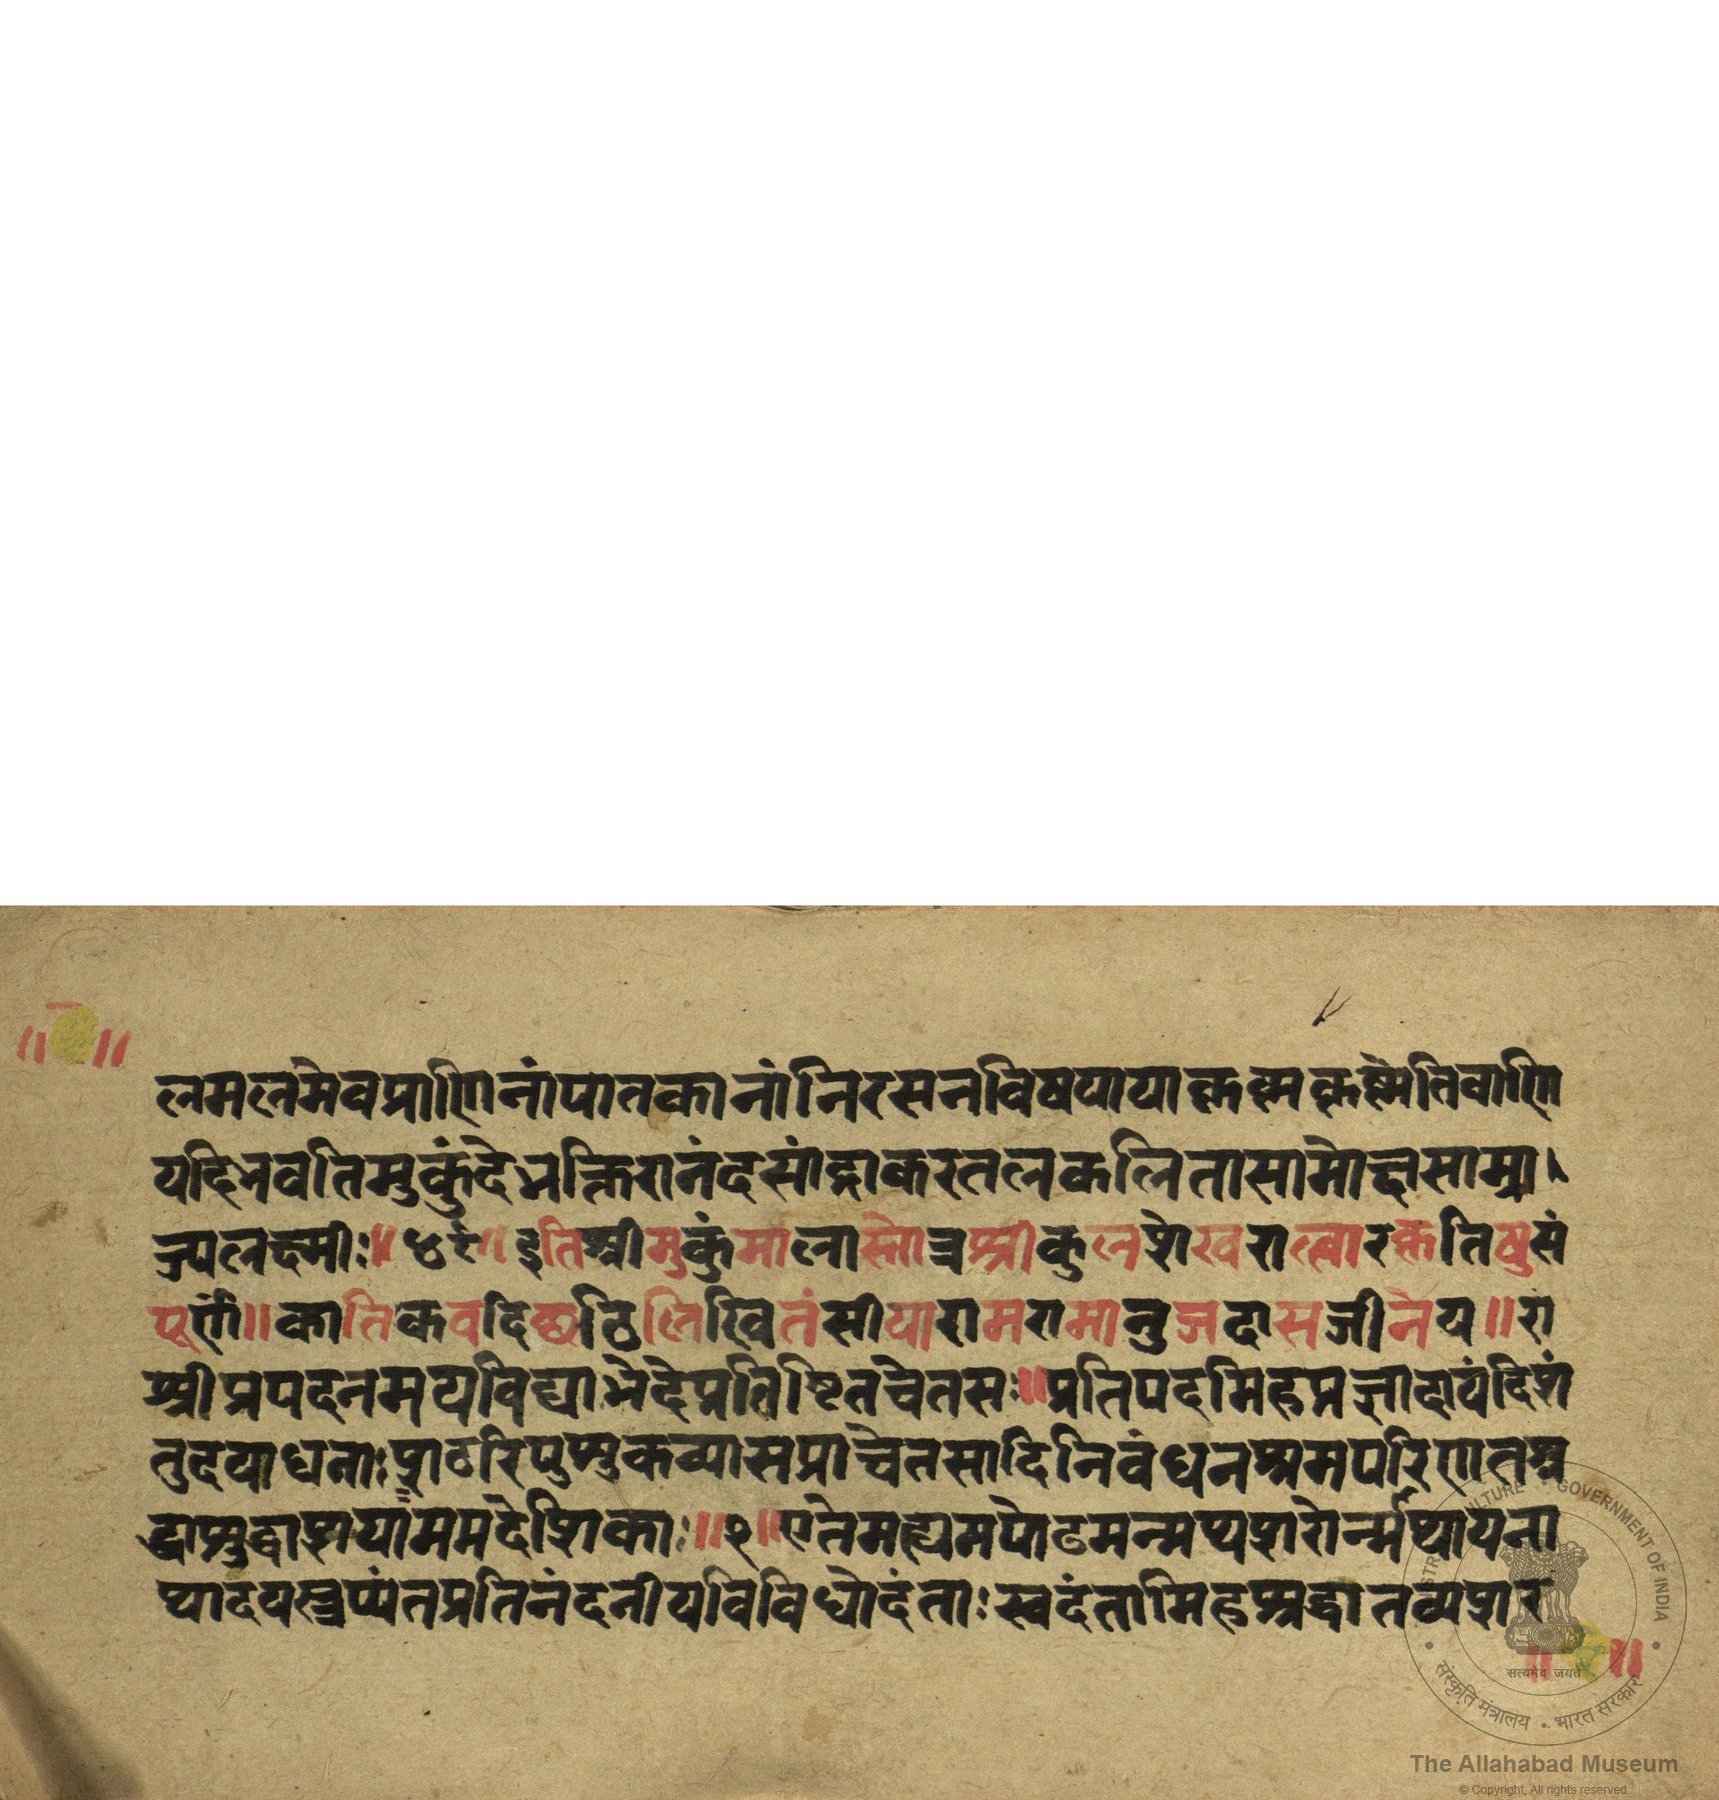 लमलमेवप्राणिनांपातकानांनिरसनविषयायाकृष्मकृष्मेतिवाणि
यदिभवतिमुकुंदेभक्तिरानंदसांद्राकरतलकलितासामोक्षसाम्रा।
ज्यलक्ष्मीः॥४८॥इतिश्रीमुकुंमालास्तोत्रश्रीकुलशेखरात्वारकृतिषुसं
पूर्णं॥कातिकवदिछठिलिखितंसीयारामरामानुजदासजीनय॥रा
श्रीप्रपदनमयविद्याभेदेप्रतिष्टितचेतस॥प्रतिपदमिहप्रज्ञादायंदिशं
तुदयाधनाःशठरिपुशुकव्यासप्राचेतसादिनिवंधनश्रमपरिणतश्र
द्धाशुद्धाशयांममदेशिकाः॥२॥एतेमह्यमपोढमन्मथशरोर्न्मथायना
थादयस्त्रय्यंतप्रतिनंदनीयविविधोदंताःस्वदंतामिहश्रद्धातव्यशर
सत्यमेव जयते
MINISTRY OF CULTURE · GOVERNMENT OF INDIA
संस्कृति मंत्रालय · भारत सरकार
The Allahabad Museum
© Copyright, All rights reserved.